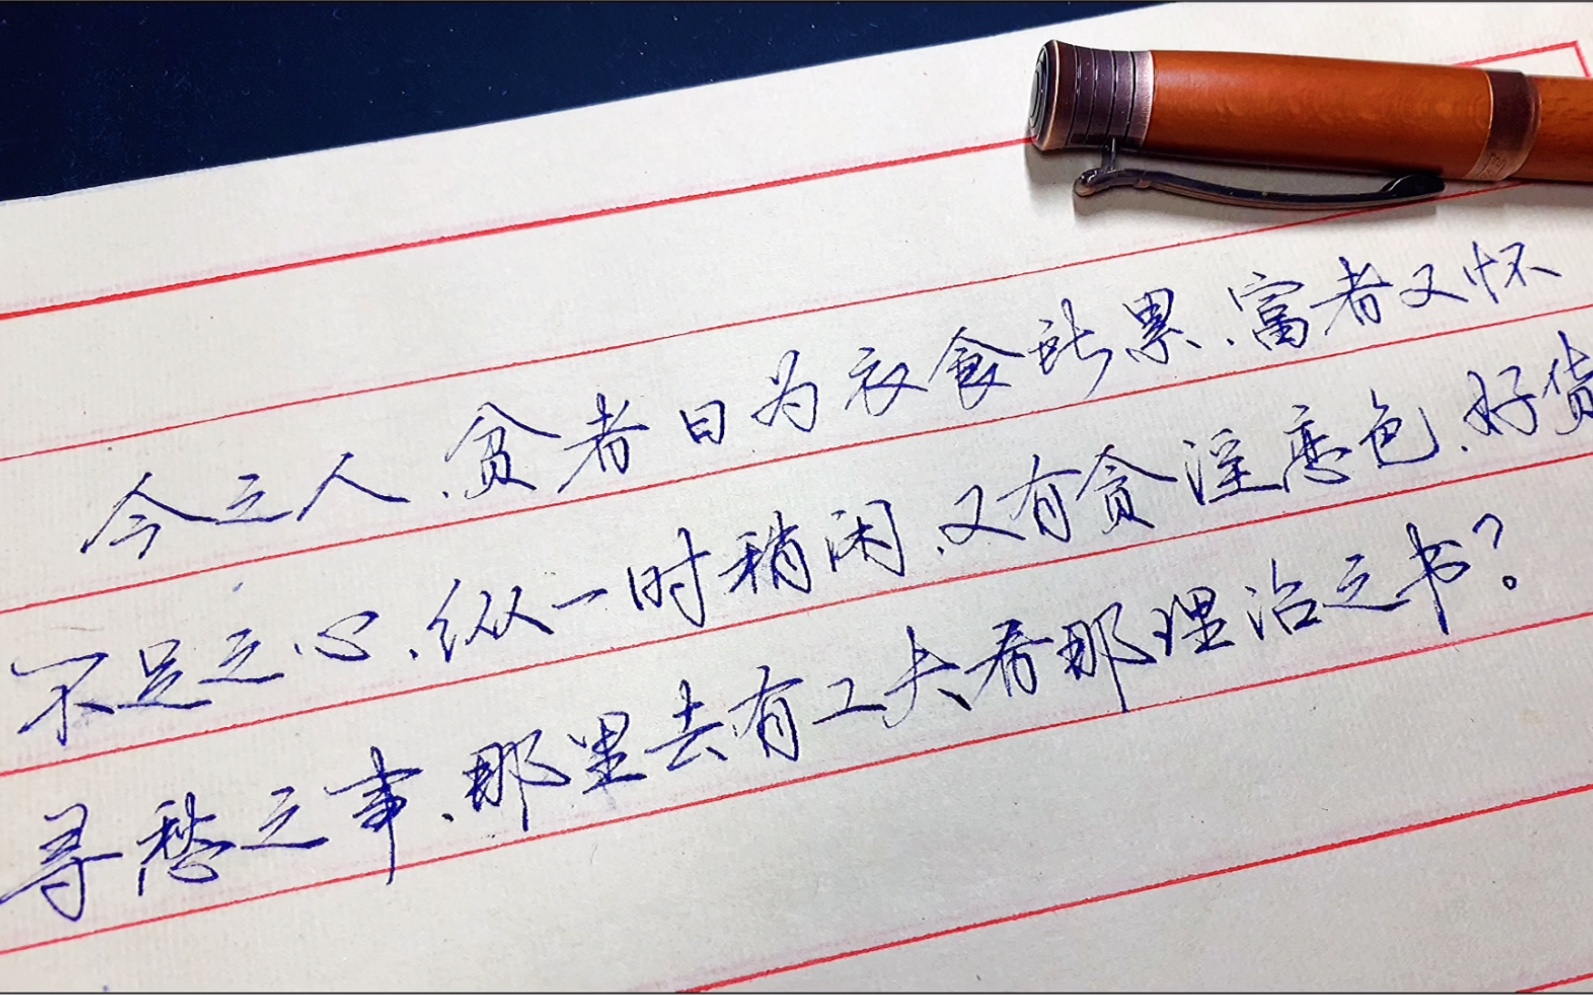 今之人、贫者日为衣食所累、富者又怀
不足之心、纵一时稍闲、又有贪淫恋色、好货
寻愁之事、那里去有工夫看那理治之书？